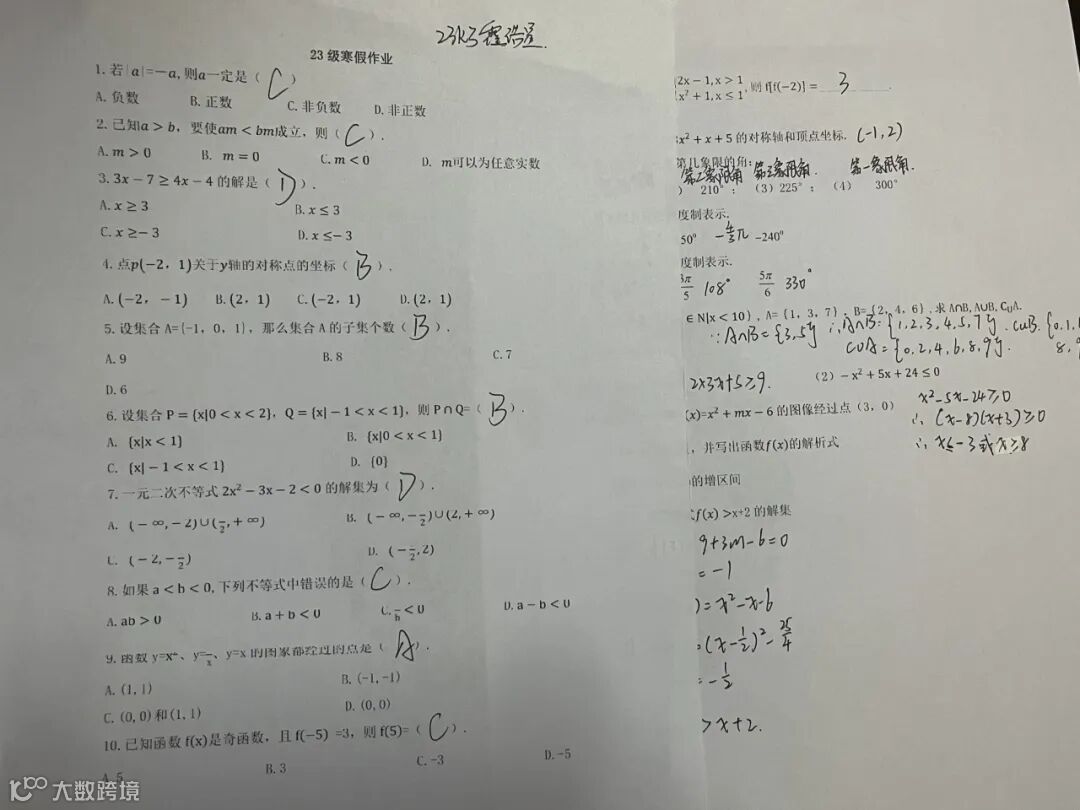 23级寒假作业
1. 若|a|=-a, 则a一定是（ C ）
A. 负数 B. 正数 C. 非负数 D. 非正数
2. 已知a > b，要使am < bm成立，则（ C ）.
A. m > 0 B. m = 0 C. m < 0 D. m可以为任意实数
3. 3x − 7 ≥ 4x − 4 的解是（ D ）.
A. x ≥ 3 B. x ≤ 3
C. x ≥ −3 D. x ≤ −3
4. 点p(−2，1)关于y轴的对称点的坐标（ B ）.
A. (−2，−1) B. (2，1) C. (−2，1) D. (2，1)
5. 设集合 A={-1，0，1}，那么集合 A 的子集个数（ B ）.
A. 9 B. 8 C. 7
D. 6
6. 设集合 P = {x|0 < x < 2}，Q = {x| − 1 < x < 1}，则 P ∩ Q=（ B ）.
A. {x|x < 1} B. {x|0 < x < 1}
C. {x| − 1 < x < 1} D. {0}
7. 一元二次不等式 2x² − 3x − 2 < 0 的解集为（ D ）.
A. (−∞, −2)∪(1/2, +∞) B. (−∞, −1/2)∪(2, +∞)
C. (−2, −1/2) D. (−1/2, 2)
8. 如果 a < b < 0, 下列不等式中错误的是（ C ）.
A. ab > 0 B. a + b < 0 C. a/b < 0 D. a − b < 0
9. 函数 y=x²、y=1/x、y=x 的图象都经过的点是（ A ）.
A. (1, 1) B. (-1, -1)
C. (0, 0) 和 (1, 1) D. (0, 0)
10. 已知函数 f(x)是奇函数，且 f(−5) =3，则 f(5)=（ C ）.
A. 5 B. 3 C. -3 D. -5
2x − 1, x > 1
x² + 1, x ≤ 1, 则 f[f(−2)] = 3.
x² + x + 5 的对称轴和顶点坐标. (-1, 2)
第几象限的角:
第二象限角 第三象限角. 第一象限角.
210°； （3）225°； （4） 300°
度制表示.
50° -4/3π -240°
度制表示.
3π/5 108° 5π/6 330°
∈ N|x < 10}，A= {1，3，7}，B= {2，4，6}，求 A∩B, A∪B, C∪A.
∵A∩B={3,5} ∴A∩B={1,2,3,4,5,7}. C∪B.{0,1,
C∪A={0,2,4,6,8,9}. 8,9
2x3x+5≥9. （2）−x² + 5x + 24 ≤ 0
x²-5x-24≥0
(x)=x² + mx − 6 的图像经过点（3，0） ∴(x-8)(x+3)≥0
，并写出函数f(x)的解析式 ∴x≤-3或x≥8
的增区间
f(x) >x+2 的解集
9+3m-6=0
=-1
)=x²-x-6
=(x-1/2)²-25/4
=-1/2
>x+2.
大数跨境